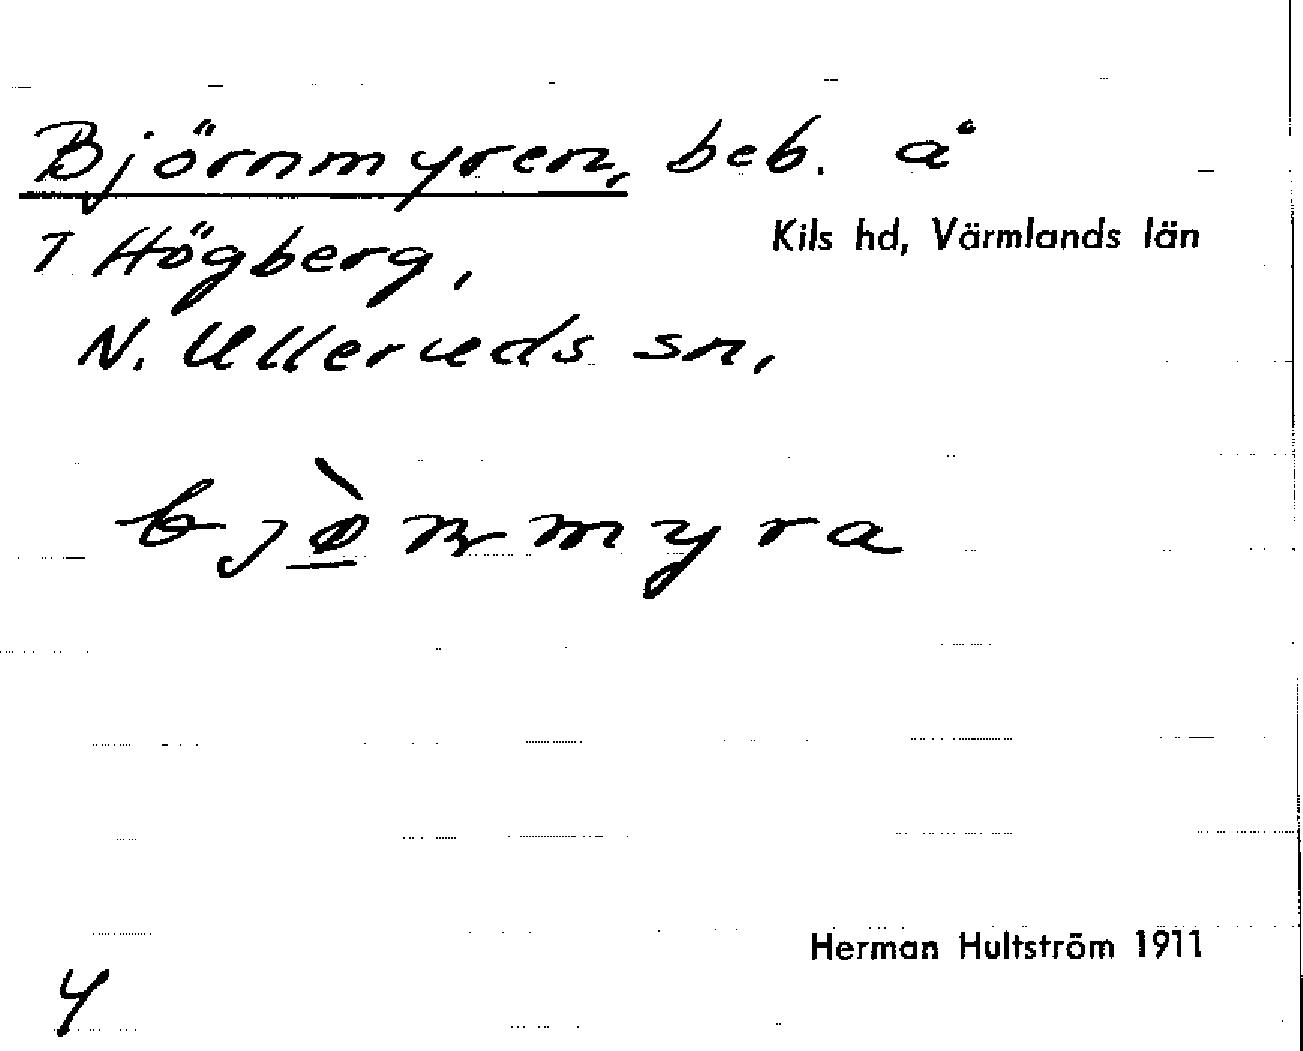 Björnmyren, beb. å
T Högberg,
Kils hd, Värmlands län
N. Ulleruds sn,
bjø̲̀nmyra
Herman Hultström 1911
4